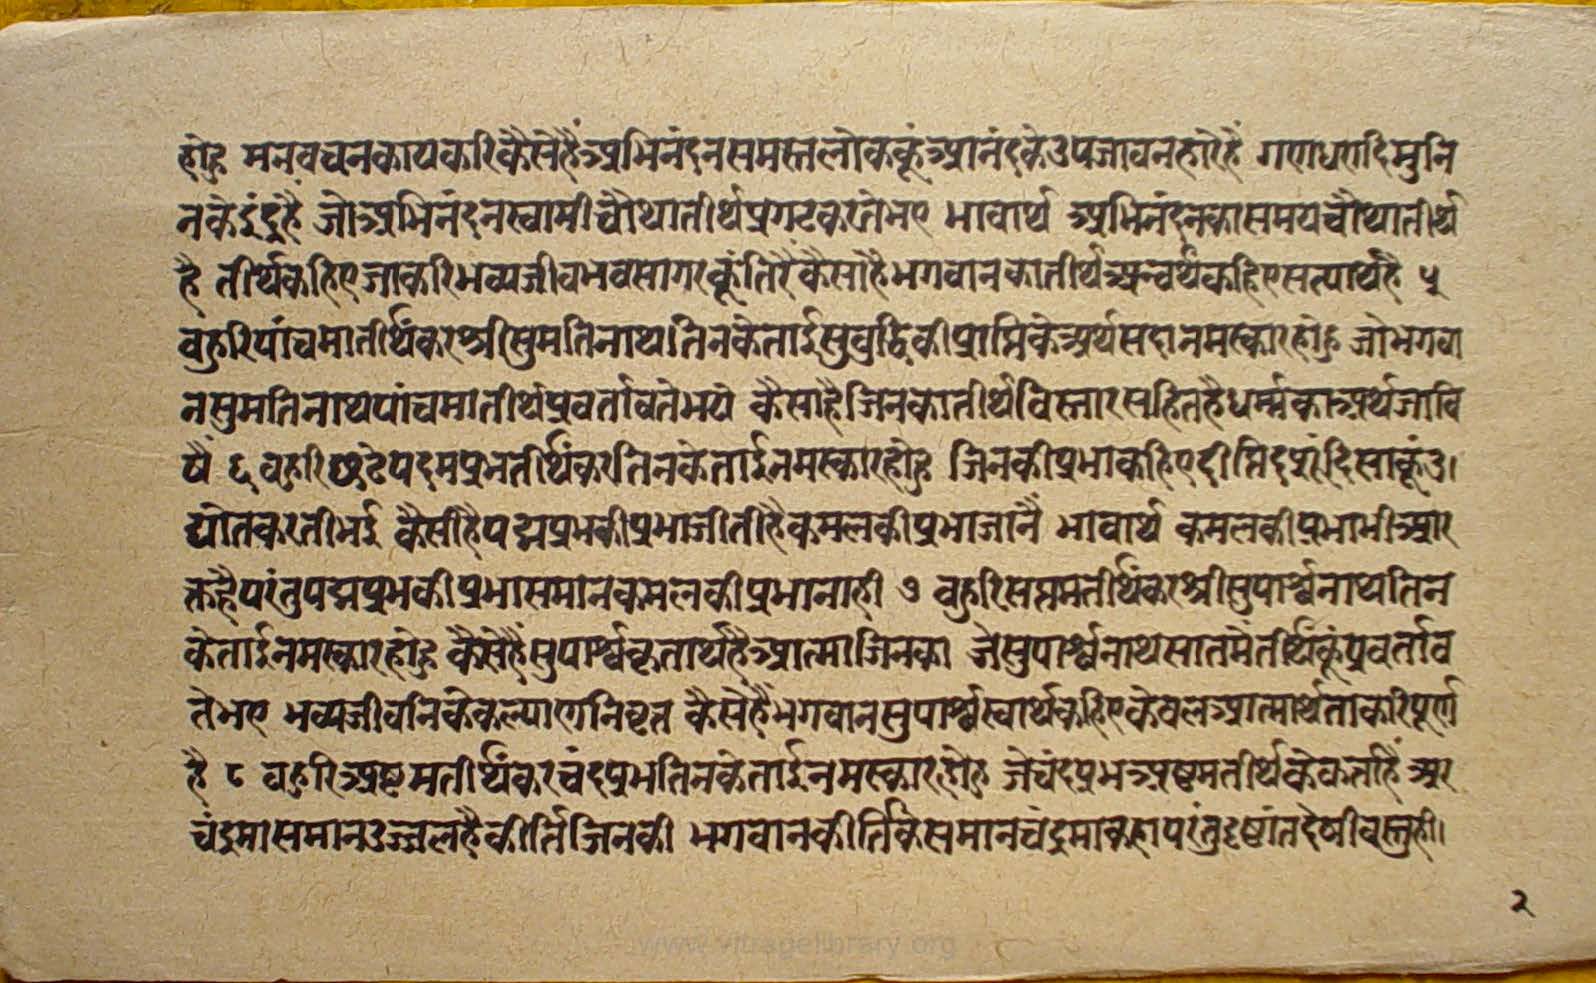 होहु मनवचनकायकरिकैसेहैंअभिनंदनसमस्तलोककूंआनंदकेउपजावनहारेहैं गणधरादिमुनि
नकेइंद्रहैं जोअभिनंदनस्वामीचौथातीर्थप्रगटकरतेभए भावार्थ अभिनंदनकासमयचौथातीर्थ
है तीर्थकहिएजाकरिभव्यजीवभवसागरकूंतिरैंकैसाहैभगवानकातीर्थअन्वर्थकहिएसत्यार्थहै ५
बहुरिपांचमातीर्थंकरश्रीसुमतिनाथतिनकेताईसुबुद्धिकीप्राप्तिकेअर्थसदानमस्कारहोहु जोभगवा
नसुमतिनाथपांचमातीर्थप्रवर्तावतेभये कैसाहैजिनकातीर्थविस्तारसहितहैधर्म्मकाअर्थजावि
षैं ६ बहुरिछठेपदमप्रभतीर्थंकरतिनकेताईनमस्कारहोहु जिनकीप्रभाकहिएदीप्तिदसूंदिसाकूंउ।
द्योतकरतीभई कैसीहैपद्मप्रभकीप्रभाजीतीहैकमलकीप्रभाजानै भावार्थ कमलकीप्रभाभीआर
क्तहैपरंतुपद्मप्रभकीप्रभासमानकमलकीप्रभानाही ७ बहुरिसप्तमतीर्थंकरश्रीसुपार्श्वनाथतिन
केताईनमस्कारहोहु कैसेहैंसुपार्श्वकृतार्थहैआत्माजिनका जेसुपार्श्वनाथसातमैंतीर्थकूंप्रवर्ताव
तेभए भव्यजीवनिकेकल्याणनिमित्त कैसेहैंभगवानसुपार्श्वस्वार्थकहिएकेवलआत्मार्थताकरिपूर्ण
हैं ८ बहुरिअष्टमतीर्थंकरचंदप्रभतिनकेताईनमस्कारहोहु जेचंदप्रभअष्टमतीर्थकेकर्ताहैं अर
चंद्रमासमानउज्जलहैकीर्तिजिनकी भगवानकीर्तिकेसमानचंद्रमाकहापरंतुदृष्टांतदेषीवस्तुही।
२
www.vitragelibrary.org